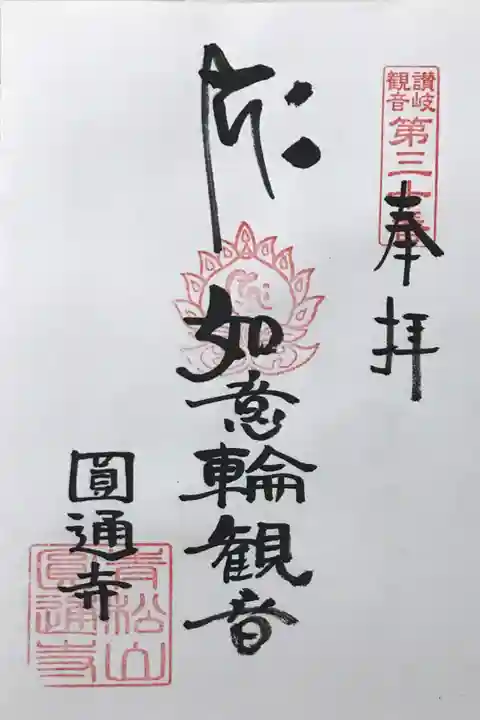 讃岐
観音
第三十番
奉拝
如意輪観音
圓通寺
青松山
圓通寺